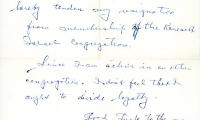 hereby tender my resignation
from membership of the Research
Israel Congregation.
Since I am active in an other
congregation. I don't feel that I
ought to divide loyalty.
Good luck to the